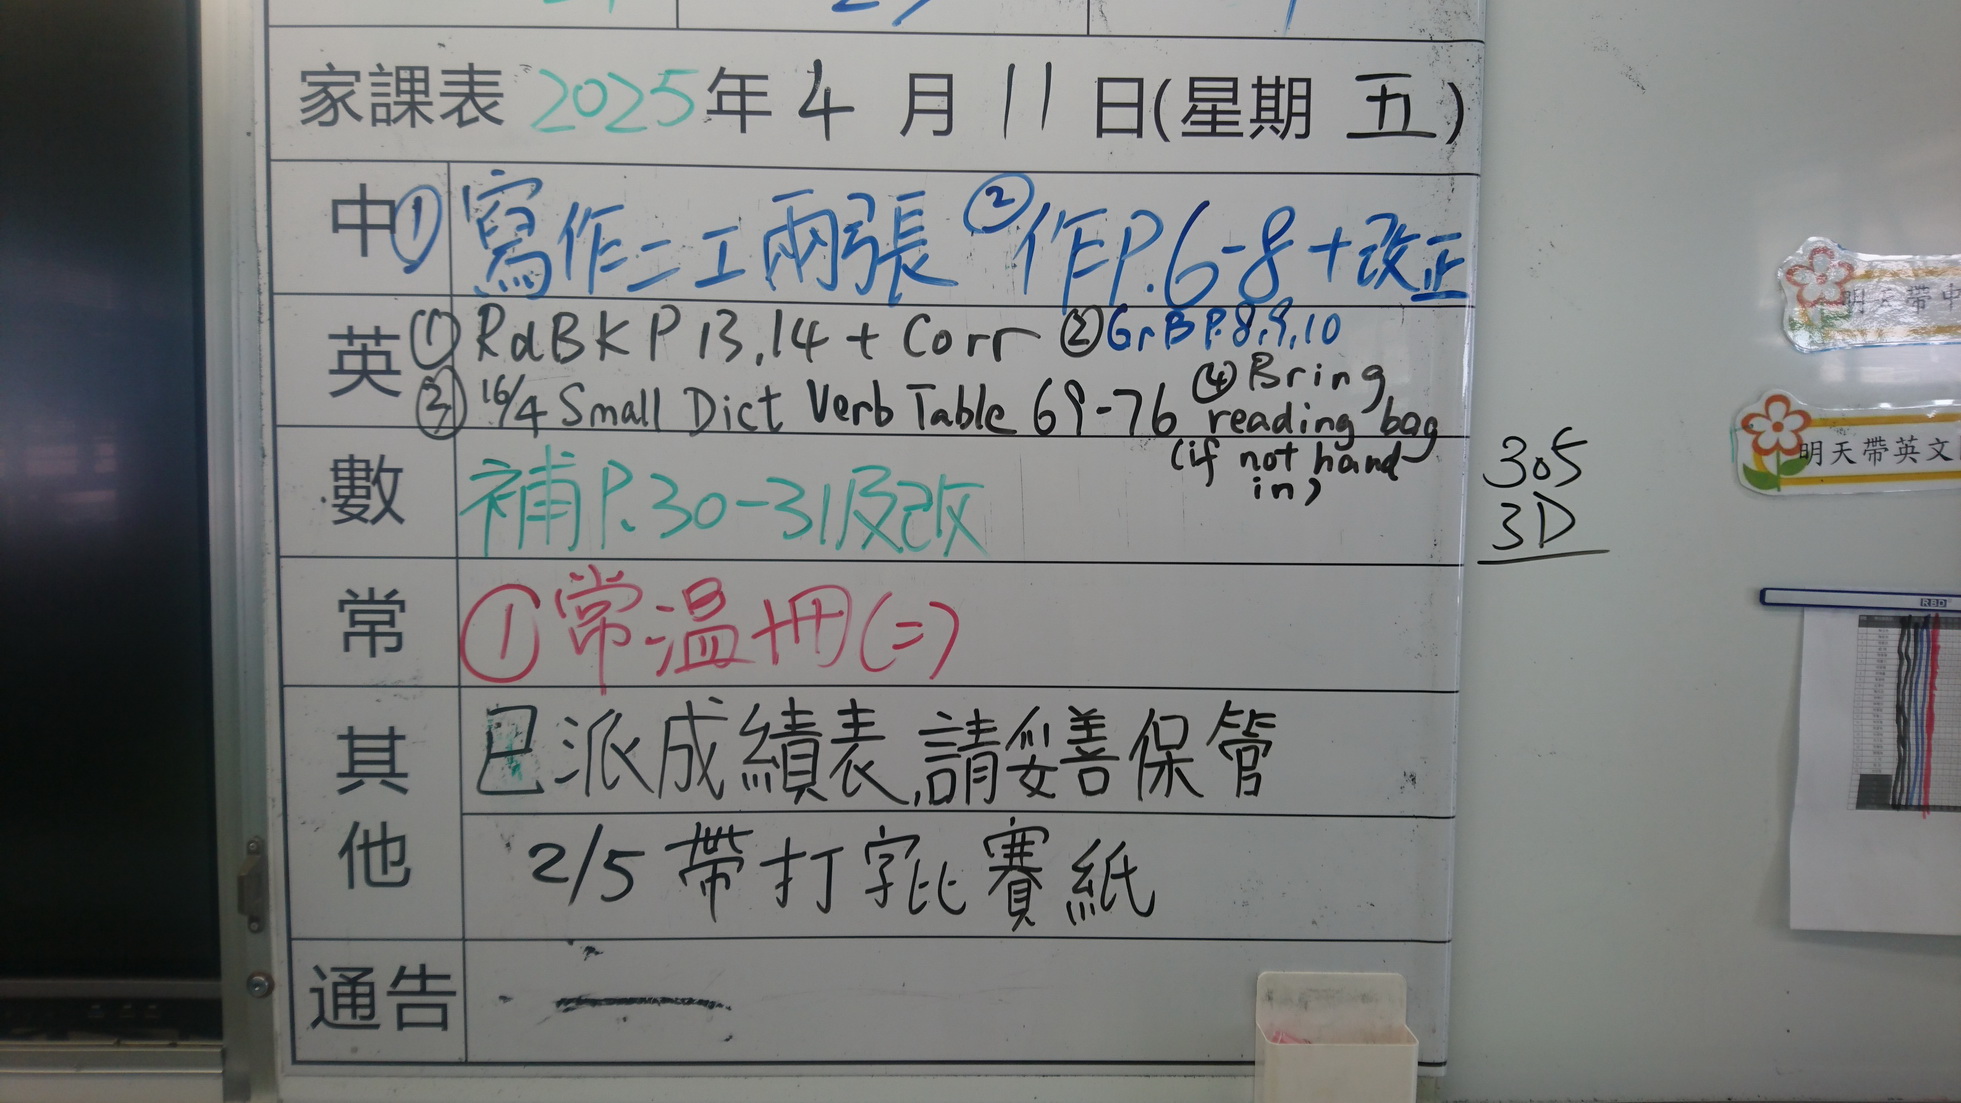 家課表 2025年 4 月 11 日(星期 五)
中 ① 寫作二工兩張 ② 作P.6-8+改正
英 ① RdBK P 13,14 + Corr ② GrB P.8,9,10
③ 16/4 Small Dict Verb Table 69-76 ④ Bring
reading bag
(if not hand
in)
數 補P.30-31及改
常 ① 常溫冊(二)
其他 已派成績表,請妥善保管
2/5 帶打字比賽紙
通告 —
305
3D
明天帶中
明天帶英文
RBD